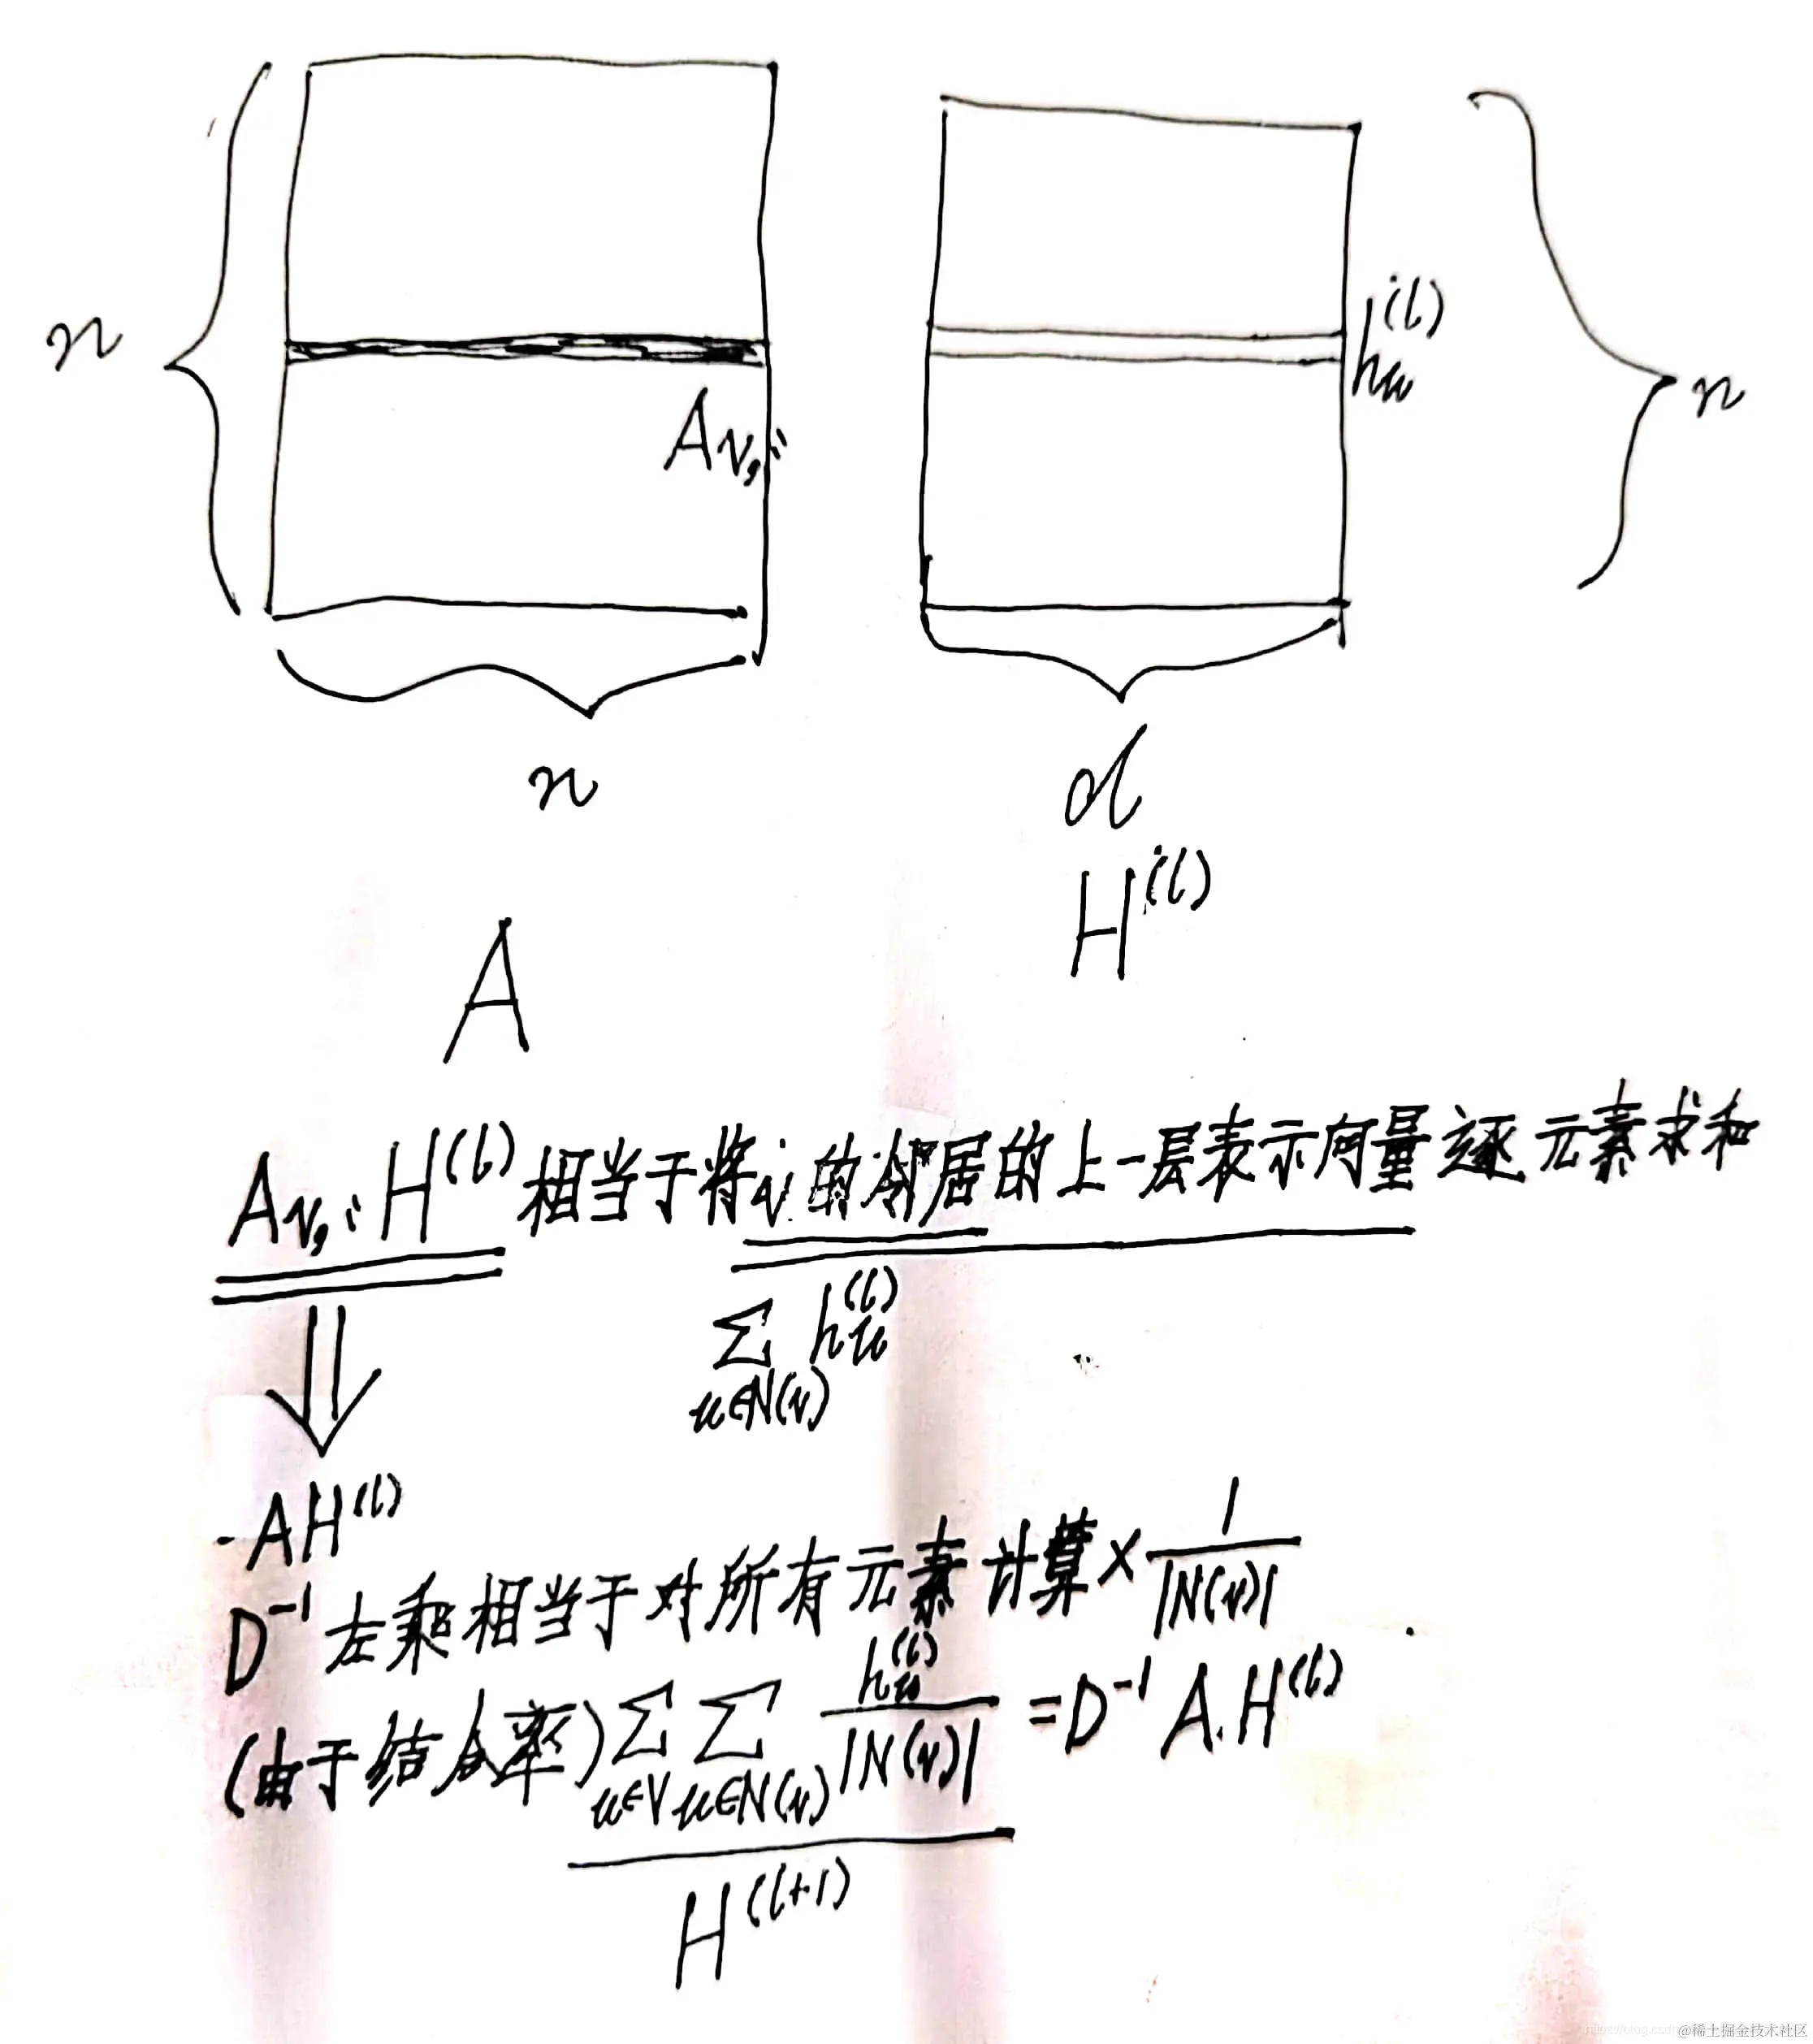 n
A_{v,:}
h_u^{(l)}
n
n
d
H^{(l)}
A
A_{v,:} H^{(l)} 相当于将v的邻居的上一层表示向量逐元素求和
∑_{u∈N(v)} h_u^{(l)}
AH^{(l)}
D^{-1} 左乘相当于对所有元素计算 × 1/|N(v)|
(由于结合率) ∑_{u∈V} ∑_{u∈N(v)} h_u^{(l)}/|N(v)| = D^{-1} A.H^{(l)}
H^{(l+1)}
@稀土掘金技术社区